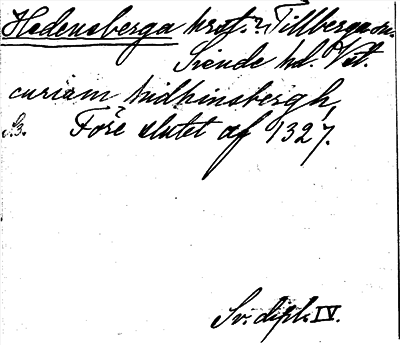 Hedensberga herrg.? Tillberga sn.
Siende hd. Vst.
curiam hudhinsbergh,
S. 3. Före slutet af 1327.
?
Sv. dipl. IV.